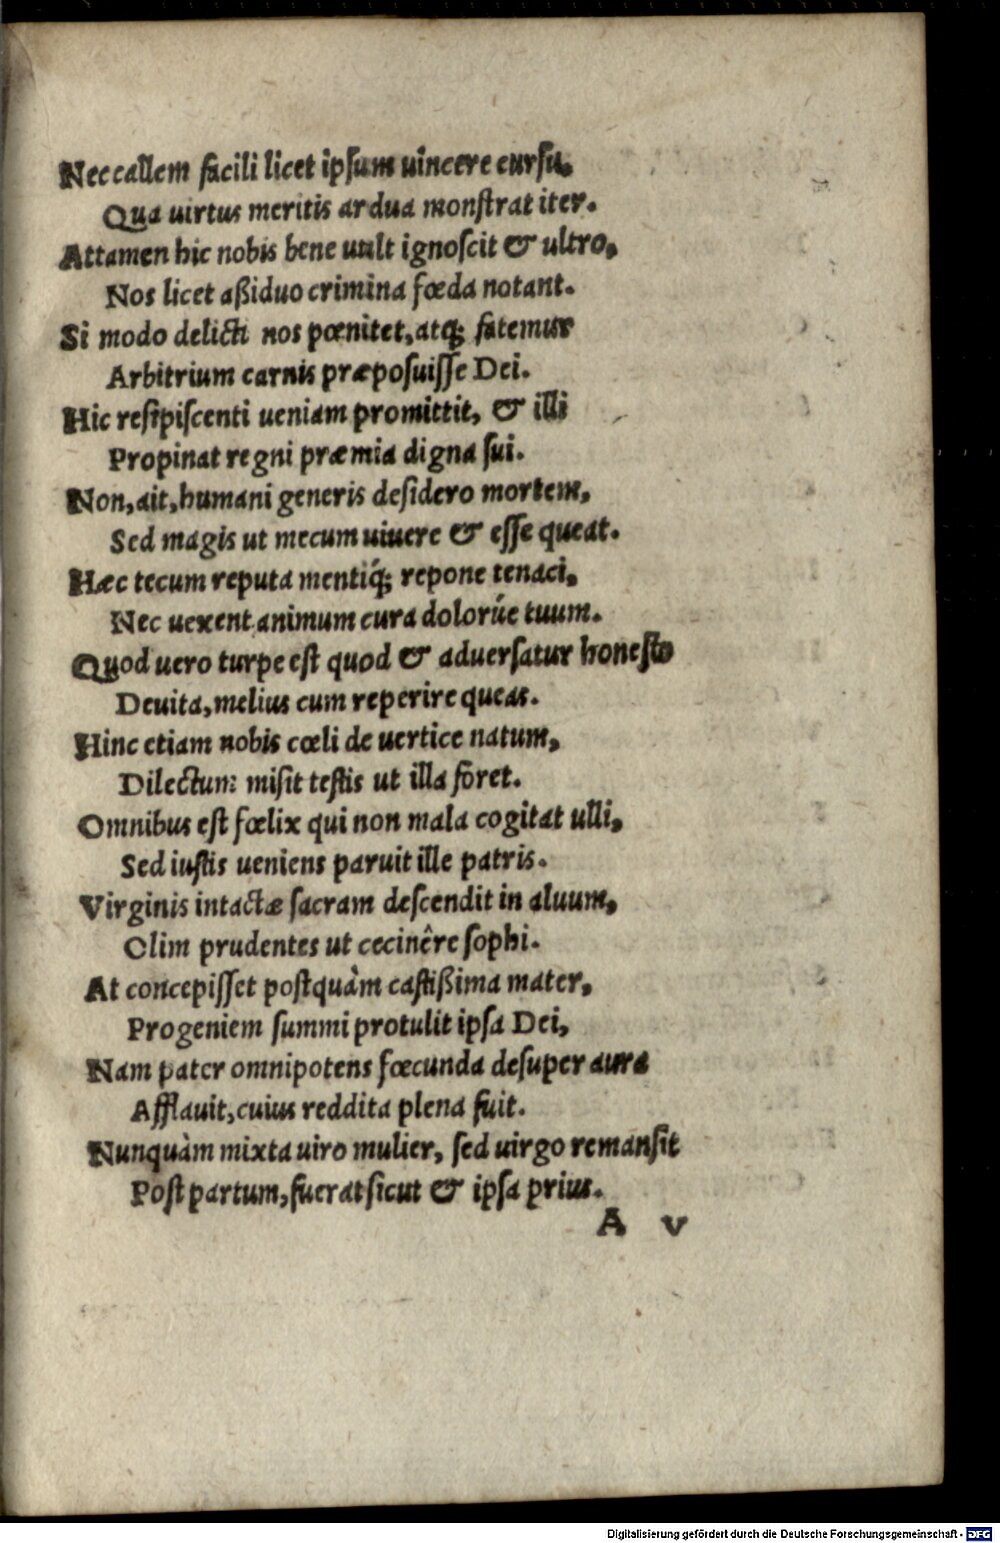 Nec callem facili licet ipsum uincere cursu,
Qua uirtus meritis ardua monſtrat iter.
Attamen hic nobis bene uult ignoſcit & ultro,
Nos licet aßiduo crimina fœda notant.
Si modo delicti nos pœnitet, atq; fatemur
Arbitrium carnis præpoſuiſſe Dei.
Hic reſipiſcenti ueniam promittit, & illi
Propinat regni præmia digna ſui.
Non, ait, humani generis deſidero mortem,
Sed magis ut mecum uiuere & eſſe queat.
Hæc tecum reputa mentiq́; repone tenaci,
Nec uexent animum cura dolorúe tuum.
Quod uero turpe eſt quod & aduerſatur honeſto
Deuita, melius cum reperire queas.
Hinc etiam nobis cœli de uertice natum,
Dilectum miſit teſtis ut illa foret.
Omnibus eſt fœlix qui non mala cogitat ulli,
Sed iuſtis ueniens paruit ille patris.
Virginis intactæ ſacram deſcendit in aluum,
Olim prudentes ut cecinêre ſophi.
At concepiſſet poſtquàm caſtißima mater,
Progeniem ſummi protulit ipſa Dei,
Nam pater omnipotens fœcunda deſuper aura
Afflauit, cuius reddita plena fuit.
Nunquàm mixta uiro mulier, ſed uirgo remanſit
Poſt partum, fuerat ſicut & ipſa prius.
A v
Digitalisierung gefördert durch die Deutsche Forschungsgemeinschaft - DFG